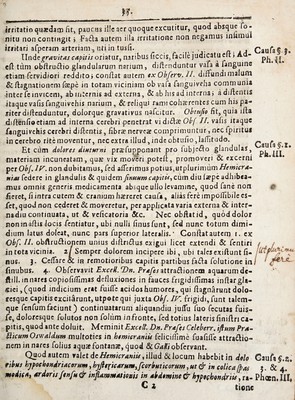 33.
irritatio quædam sit, paucus ille aer quoque excutitur, quod absque sonitu
non contingit; Facta autem illa irritatione non negamus insimul
irritari asperam arteriam, uti in tussi.
Unde gravitas capitis oriatur, naribus siccis, facilè judicatu est: Adest
tùm obstructio glandularum narium, distenduntur vasà à sanguine
etiam servidiori reddito; constat autem ex Observ. II. diffundi malum
& stagnationem sæpè in totam viciniam ob vasa sanguivehea communia
inter se invicem, ab internâ ad externa, & ab his ad interna; à distentis
itaque vasis sanguivehis narium, & reliqui rami cohærentes cum his pariter
distenduntur, dolorque gravativus nascitur. Obtusio fit, quia ista
distensio etiam ad interna cerebri penetrat vi dictæ Obf. II. vasis itaque
sanguivehis cerebri distentis, fibræ nerveæ comprimuntur, nec spiritus
in cerebro ritè moventur, nec extra illud, inde obtusio, lassitudo.
Et cùm dolores diuturni præsupponant pro subjecto glandulas,
materiam incuneatam, quæ vix moveri potest, promoveri & excerni
per Obf. IV. non dubitamus, sed asserimus potius, ut plurimùm Hemicranias
sedere in glandulis & quidem sinuum capitis, cum diu sæpè adhibeamus
omnis generis medicamenta abique ullo levamine, quod sanè non
fieret, si intra cutem & cranium hæreret causa, aliis ferè impossibile esset,
quod non cederet & moveretur, per applicata varia externa & internadio
continuata, ut & vesicatoria &c. Nec obstat id, quòd dolor
non in istis locis sentiatur, ubi nulli sinus sunt, sed nunc totum dimidium
latus doleat, nunc pars superior lateralis. Constat autem 1. ex
Obf. II. obstructionem unius districtus exigui licet extendi & sentiri
in tota vicinia. 2 Semper dolorem incipere ibi, ubi tales existunt sinus.
3. Cessare & in remotioribus capitis partibus facta solutione in
sinubus. 4. Observavit Excell. Dn. Præses attractionem aquarum destill.
in nares copiosissimas defluxiones in fauces frigidissimas inster glaciei,
(quod indicium erat fuisse acidos humores, qui stagnantes doloresque
capitis excitârunt, utpote qui juxta Obf. IV. frigidi, sunt talemque
sensum faciunt) continuatarum aliquandiu jussu suo secutas fuisse,
doloresque solutos non solum in fronte, sed totius lateris sinistri capitis,
quod ante doluit. Meminit Excell. Dn. Præses Celeberr. istum Practicum
Oswaldum multoties in hemicraniis felicissimè soasisse attractionem
in nares solius aquæ fontanæ, quod & Gasi observant.
Quod autem valet de Hemicraniis, illud & locum habebit in doloribus
hypochondriacorum, hystericarum, scorbuticorum, ut & in colica spasmodica,
ardoris sensu & inflammationis in abdomine & hypochondriis, ra-
C 2
tione
Causa §.3.
Ph. II.
Causa §.2.
Ph. III.
Causa §.2.
3. & 4.
Phœn. III,